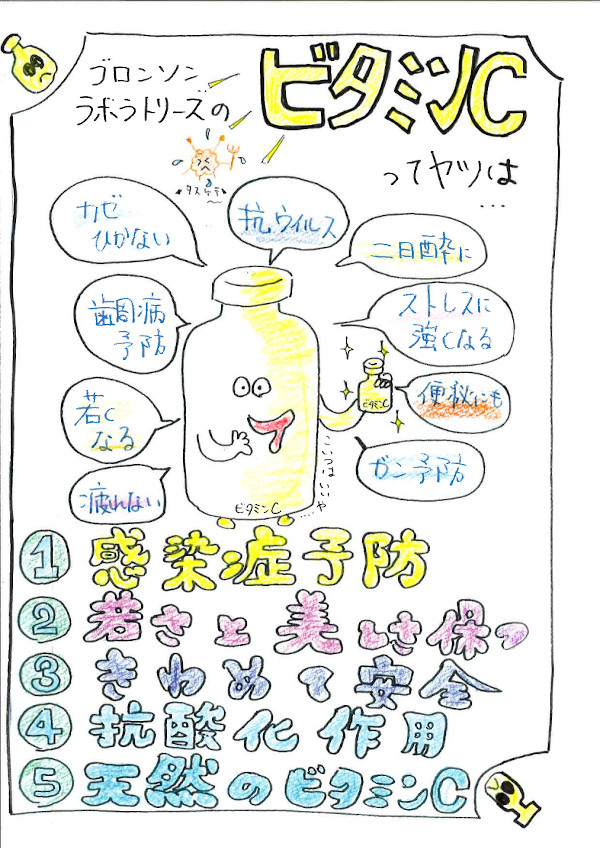 ブロンソン
ラボラトリーズの
ビタミンC
ってヤツは
…
タスケテ〜
カゼ
ひかない
抗ウイルス
二日酔に
歯周病
予防
ストレスに
強くなる
若く
なる
便秘にも
ビタミンC
ガン予防
疲れない
こいつはいいや…
ビタミンC
1 感染症予防
2 若さと美しさ保つ
3 きわめて安全
4 抗酸化作用
5 天然のビタミンC